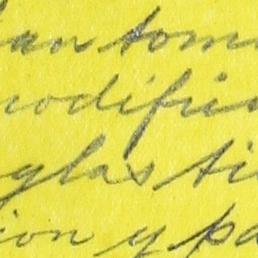 an tom
odifi
glas ti
ion y pa